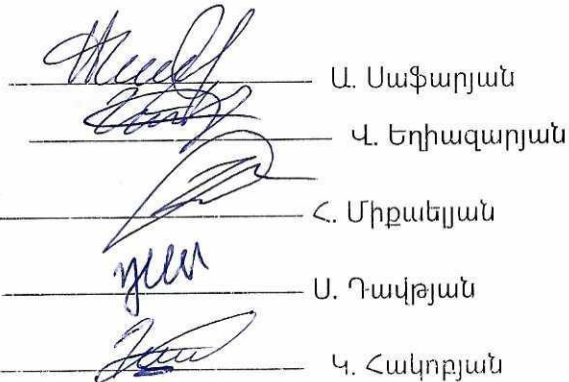 Ա. Սաֆարյան
Վ. Եղիազարյան
Հ. Միքաելյան
Ս. Դավթյան
Կ. Հակոբյան